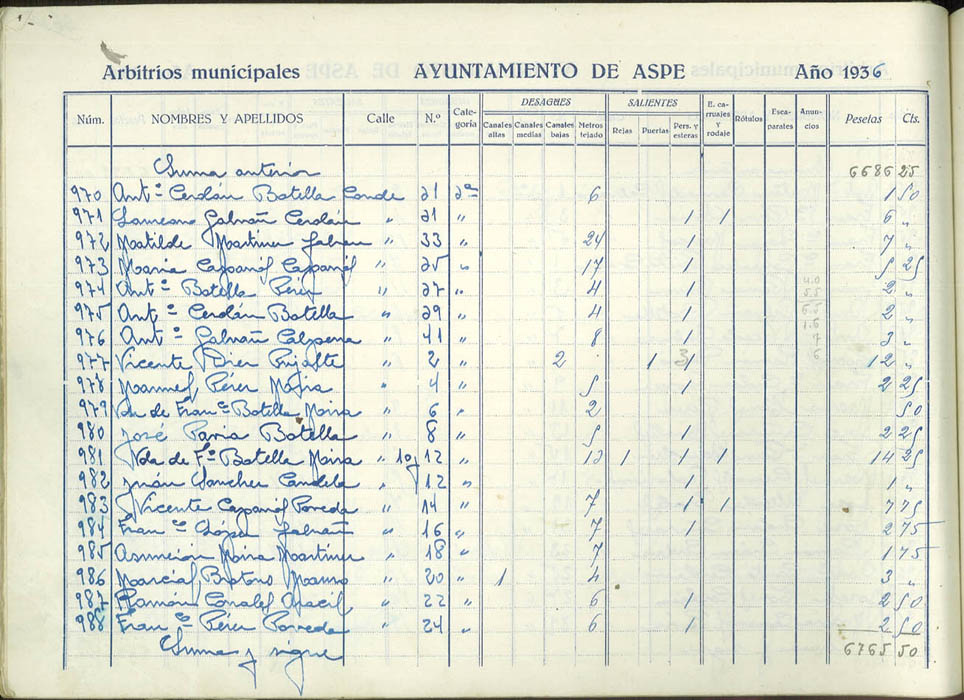 Arbitrios municipales AYUNTAMIENTO DE ASPE Año 1936
Núm. NOMBRES Y APELLIDOS Calle N.º Categoría DESAGUES Canales altas Canales medias Canales bajas Metros tejado SALIENTES Rejas Puertas Pers. y esteras E. carruajes y rodaje Rótulos Escaparates Anuncios Pesetas Cts.
Suma anterior 6686 25
970 Ant.º Cerdán Botella Conde 21 2ª 6 1 50
971 Galvañ Cerdán " 21 " 1 1 6 "
972 Matilde Martinez Galvañ " 33 " 24 1 7 "
973 Maria " 25 " 17 1 5 25
974 Ant.º Botella Pérez " 27 " 4 1 2 "
975 Ant.º Cerdán Botella " 29 " 4 1 2 "
976 Ant.º Galvañ Calpena " 41 " 8 1 3 "
977 Vicente Pujalte " 2 " 2 1 3 12 "
978 Manuel Pérez " 4 " 5 1 2 25
979 Vda de Fran.co Botella Moira " 6 " 2 50
980 José Botella " 8 " 5 1 2 25
981 Vda de F.co Botella Moira " 10 y 12 " 13 1 1 1 14 25
982 Juán Sanchez Candela " 12 " 1 1 "
983 Vicente Poveda " 14 " 7 1 1 7 75
984 Fran.co López Galvañ " 16 " 7 1 2 75
985 Asunción Martinez " 18 " 7 1 75
986 Marcial " 20 " 1 4 3 "
987 Ramón " 22 " 6 1 2 50
988 Fran.co Pérez Poveda " 24 " 6 1 2 50
Suma y sigue 6765 50